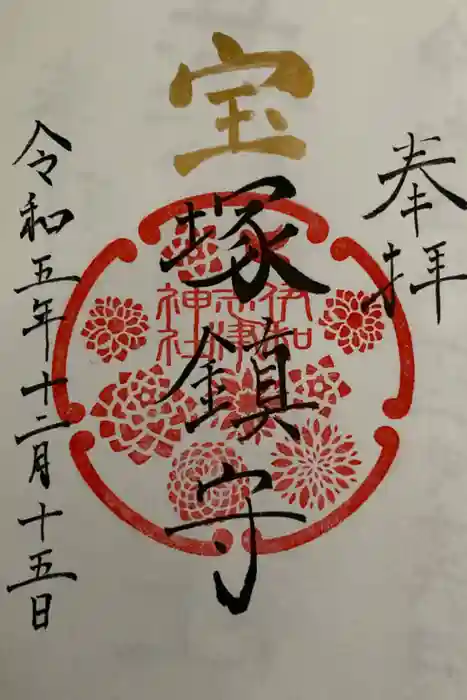 奉拝
宝塚鎮守
伊和志津神社
令和五年十二月十五日